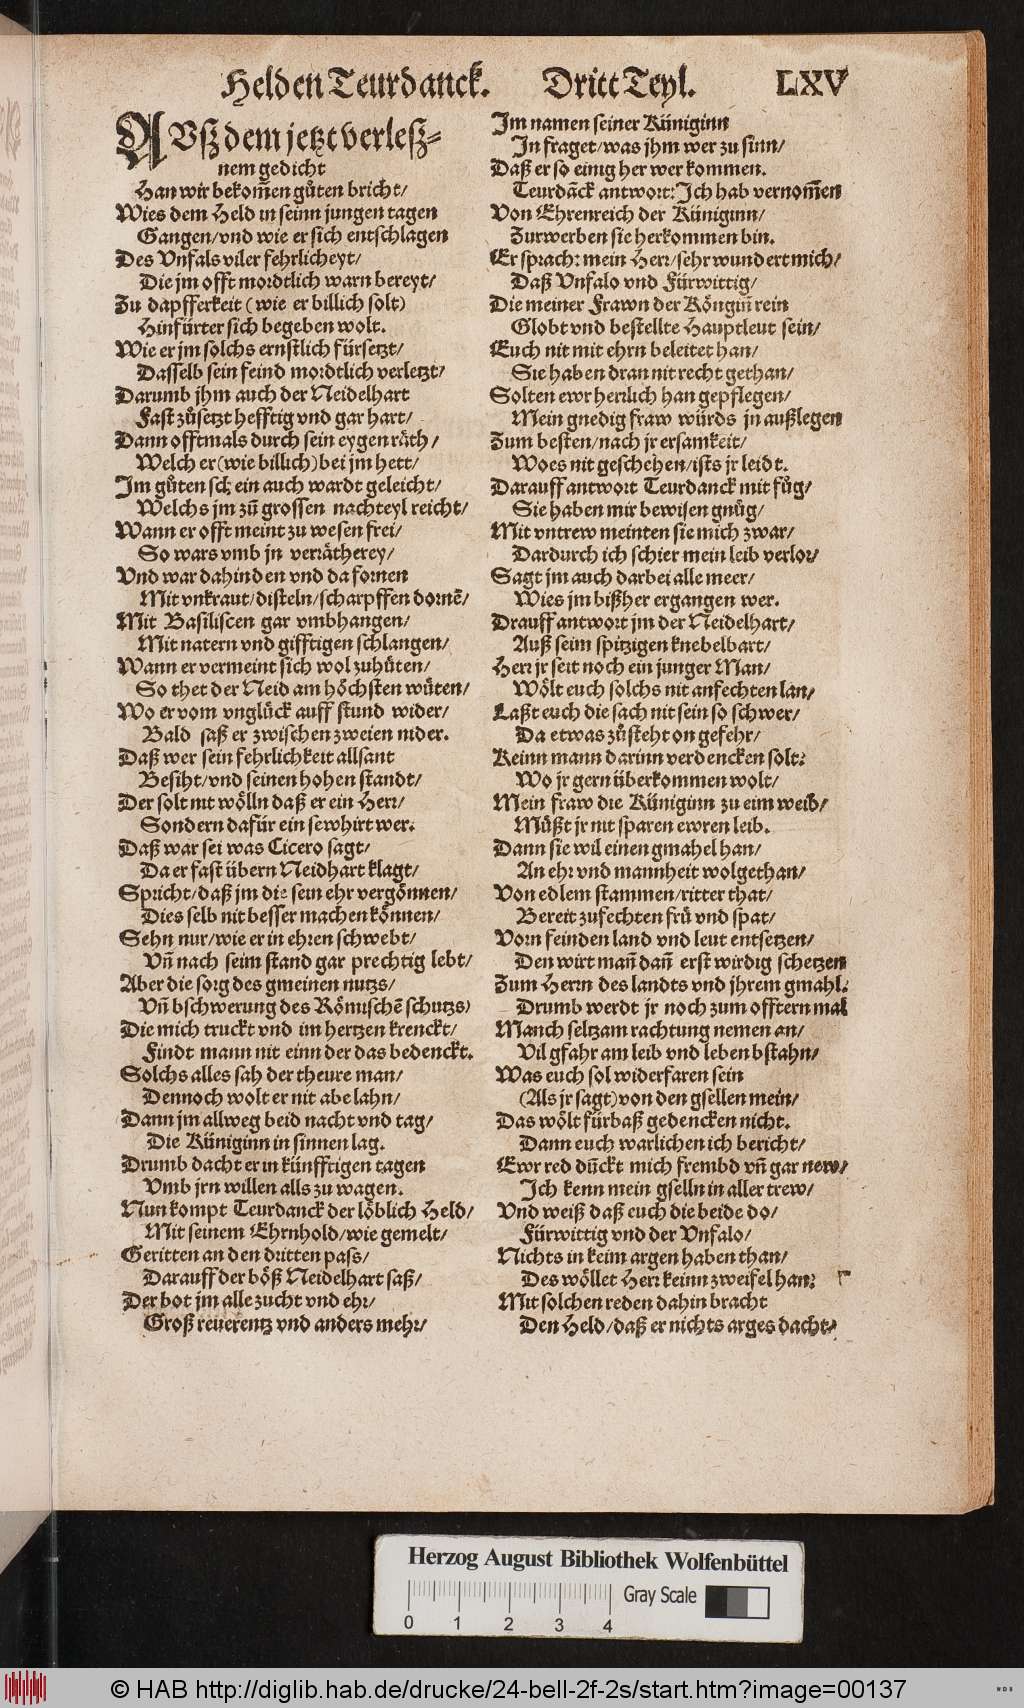 Helden Teurdanck. Dritt Teyl. LXV
AVsz dem jetzt verlesz-
nem gedicht
Han wir bekom̃en gůten bricht/
Wies dem Held in seinn jungen tagen
Gangen/vnd wie er sich entschlagen
Des Vnfals viler fehrlicheyt/
Die jm offt mordtlich warn bereyt/
Zu dapfferkeit (wie er billich solt)
Hinfürter sich begeben wolt.
Wie er jm solchs ernstlich fürsetzt/
Dasselb sein feind mordtlich verletzt/
Darumb jhm auch der Neidelhart
Fast zůsetzt hefftig vnd gar hart/
Dann offtmals durch sein eygen räth/
Welch er (wie billich) bei jm hett/
Im gůten schein auch wardt geleicht/
Welchs jm zů grossen nachteyl reicht/
Wann er offt meint zu wesen frei/
So wars vmb jn verrätherey/
Vnd war dahinden vnd da fornen
Mit vnkraut/disteln/scharpffen dornẽ/
Mit Basiliscen gar vmbhangen/
Mit natern vnd gifftigen schlangen/
Wann er vermeint sich wol zuhüten/
So thet der Neid am höchsten wüten/
Wo er vom vnglück auff stund wider/
Bald saß er zwischen zweien nider.
Daß wer sein fehrlichkeit allsant
Besiht/vnd seinen hohen standt/
Der solt nit wölln daß er ein Herr/
Sondern dafür ein sewhirt wer.
Daß war sei was Cicero sagt/
Da er fast übern Neidhart klagt/
Spricht/daß jm die sein ehr vergönnen/
Dies selb nit besser machen können/
Sehn nur/wie er in ehren schwebt/
Vñ nach seim stand gar prechtig lebt/
Aber die sorg des gmeinen nutzs/
Vñ bschwerung des Römischẽ schutzs/
Die mich truckt vnd im hertzen krenckt/
Findt mann nit einn der das bedenckt.
Solchs alles sah der theure man/
Dennoch wolt er nit abelahn/
Dann jm allweg beid nacht vnd tag/
Die Küniginn in sinnen lag.
Drumb dacht er in künfftigen tagen
Vmb jrn willen alls zu wagen.
Nun kompt Teurdanck der löblich Held/
Mit seinem Ehrnhold/wie gemelt/
Geritten an den dritten pass/
Darauff der böß Neidelhart saß/
Der bot jm alle zucht vnd ehr/
Groß reuerentz vnd anders mehr/
Im namen seiner Küniginn
In fraget/was jhm wer zu sinn/
Daß er so einig her wer kommen.
Teurdãck antwort: Ich hab vernom̃en
Von Ehrenreich der Küniginn/
Zurwerben sie herkommen bin.
Er sprach: mein Herr/sehr wundert mich/
Daß Vnfalo vnd Fürwittig/
Die meiner Frawn der Köngiñ rein
Globt vnd bestellte Hauptleut sein/
Euch nit mit ehrn beleitet han/
Sie haben dran nit recht gethan/
Solten ewr herrlich han gepflegen/
Mein gnedig fraw würds jn außlegen
Zum besten/nach jr ersamkeit/
Wo es nit geschehen/ists jr leidt.
Darauff antwort Teurdanck mit fůg/
Sie haben mir bewisen gnůg/
Mit vntrew meinten sie mich zwar/
Dardurch ich schier mein leib verlor/
Sagt jm auch darbei alle meer/
Wies jm bißher ergangen wer.
Drauff antwort jm der Neidelhart/
Auß seim spitzigen knebelbart/
Herr jr seit noch ein junger Man/
Wölt euch solchs nit anfechten lan/
Laßt euch die sach nit sein so schwer/
Da etwas zůsteht on gefehr/
Keinn mann darinn verdencken solt:
Wo jr gern überkommen wolt/
Mein fraw die Küniginn zu eim weib/
Müßt jr nit sparen ewren leib.
Dann sie wil einen gmahel han/
An ehr vnd mannheit wolgethan/
Von edlem stammen/ritter that/
Bereit zufechten frü vnd spat/
Vorn feinden land vnd leut entsetzen/
Den wirt mañ dañ erst wirdig schetzen
Zum Herrn des landts vnd jhrem gmahl:
Drumb werdt jr noch zum offtern mal
Manch seltzam rachtung nemen an/
Vil gfahr am leib vnd leben bstahn/
Was euch sol widerfaren sein
(Als jr sagt) von den gsellen mein/
Das wölt fürbaß gedencken nicht.
Dann euch warlichen ich bericht/
Ewr red dũckt mich frembd vñ gar new/
Ich kenn mein gselln in aller trew/
Vnd weiß daß euch die beide do/
Fürwittig vnd der Vnfalo/
Nichts in keim argen haben than/
Des wöllet Herr keinn zweifel han:
Mit solchen reden dahin bracht
Den Held/daß er nichts arges dacht/
Herzog August Bibliothek Wolfenbüttel
Gray Scale
0 1 2 3 4
© HAB http://diglib.hab.de/drucke/24-bell-2f-2s/start.htm?image=00137